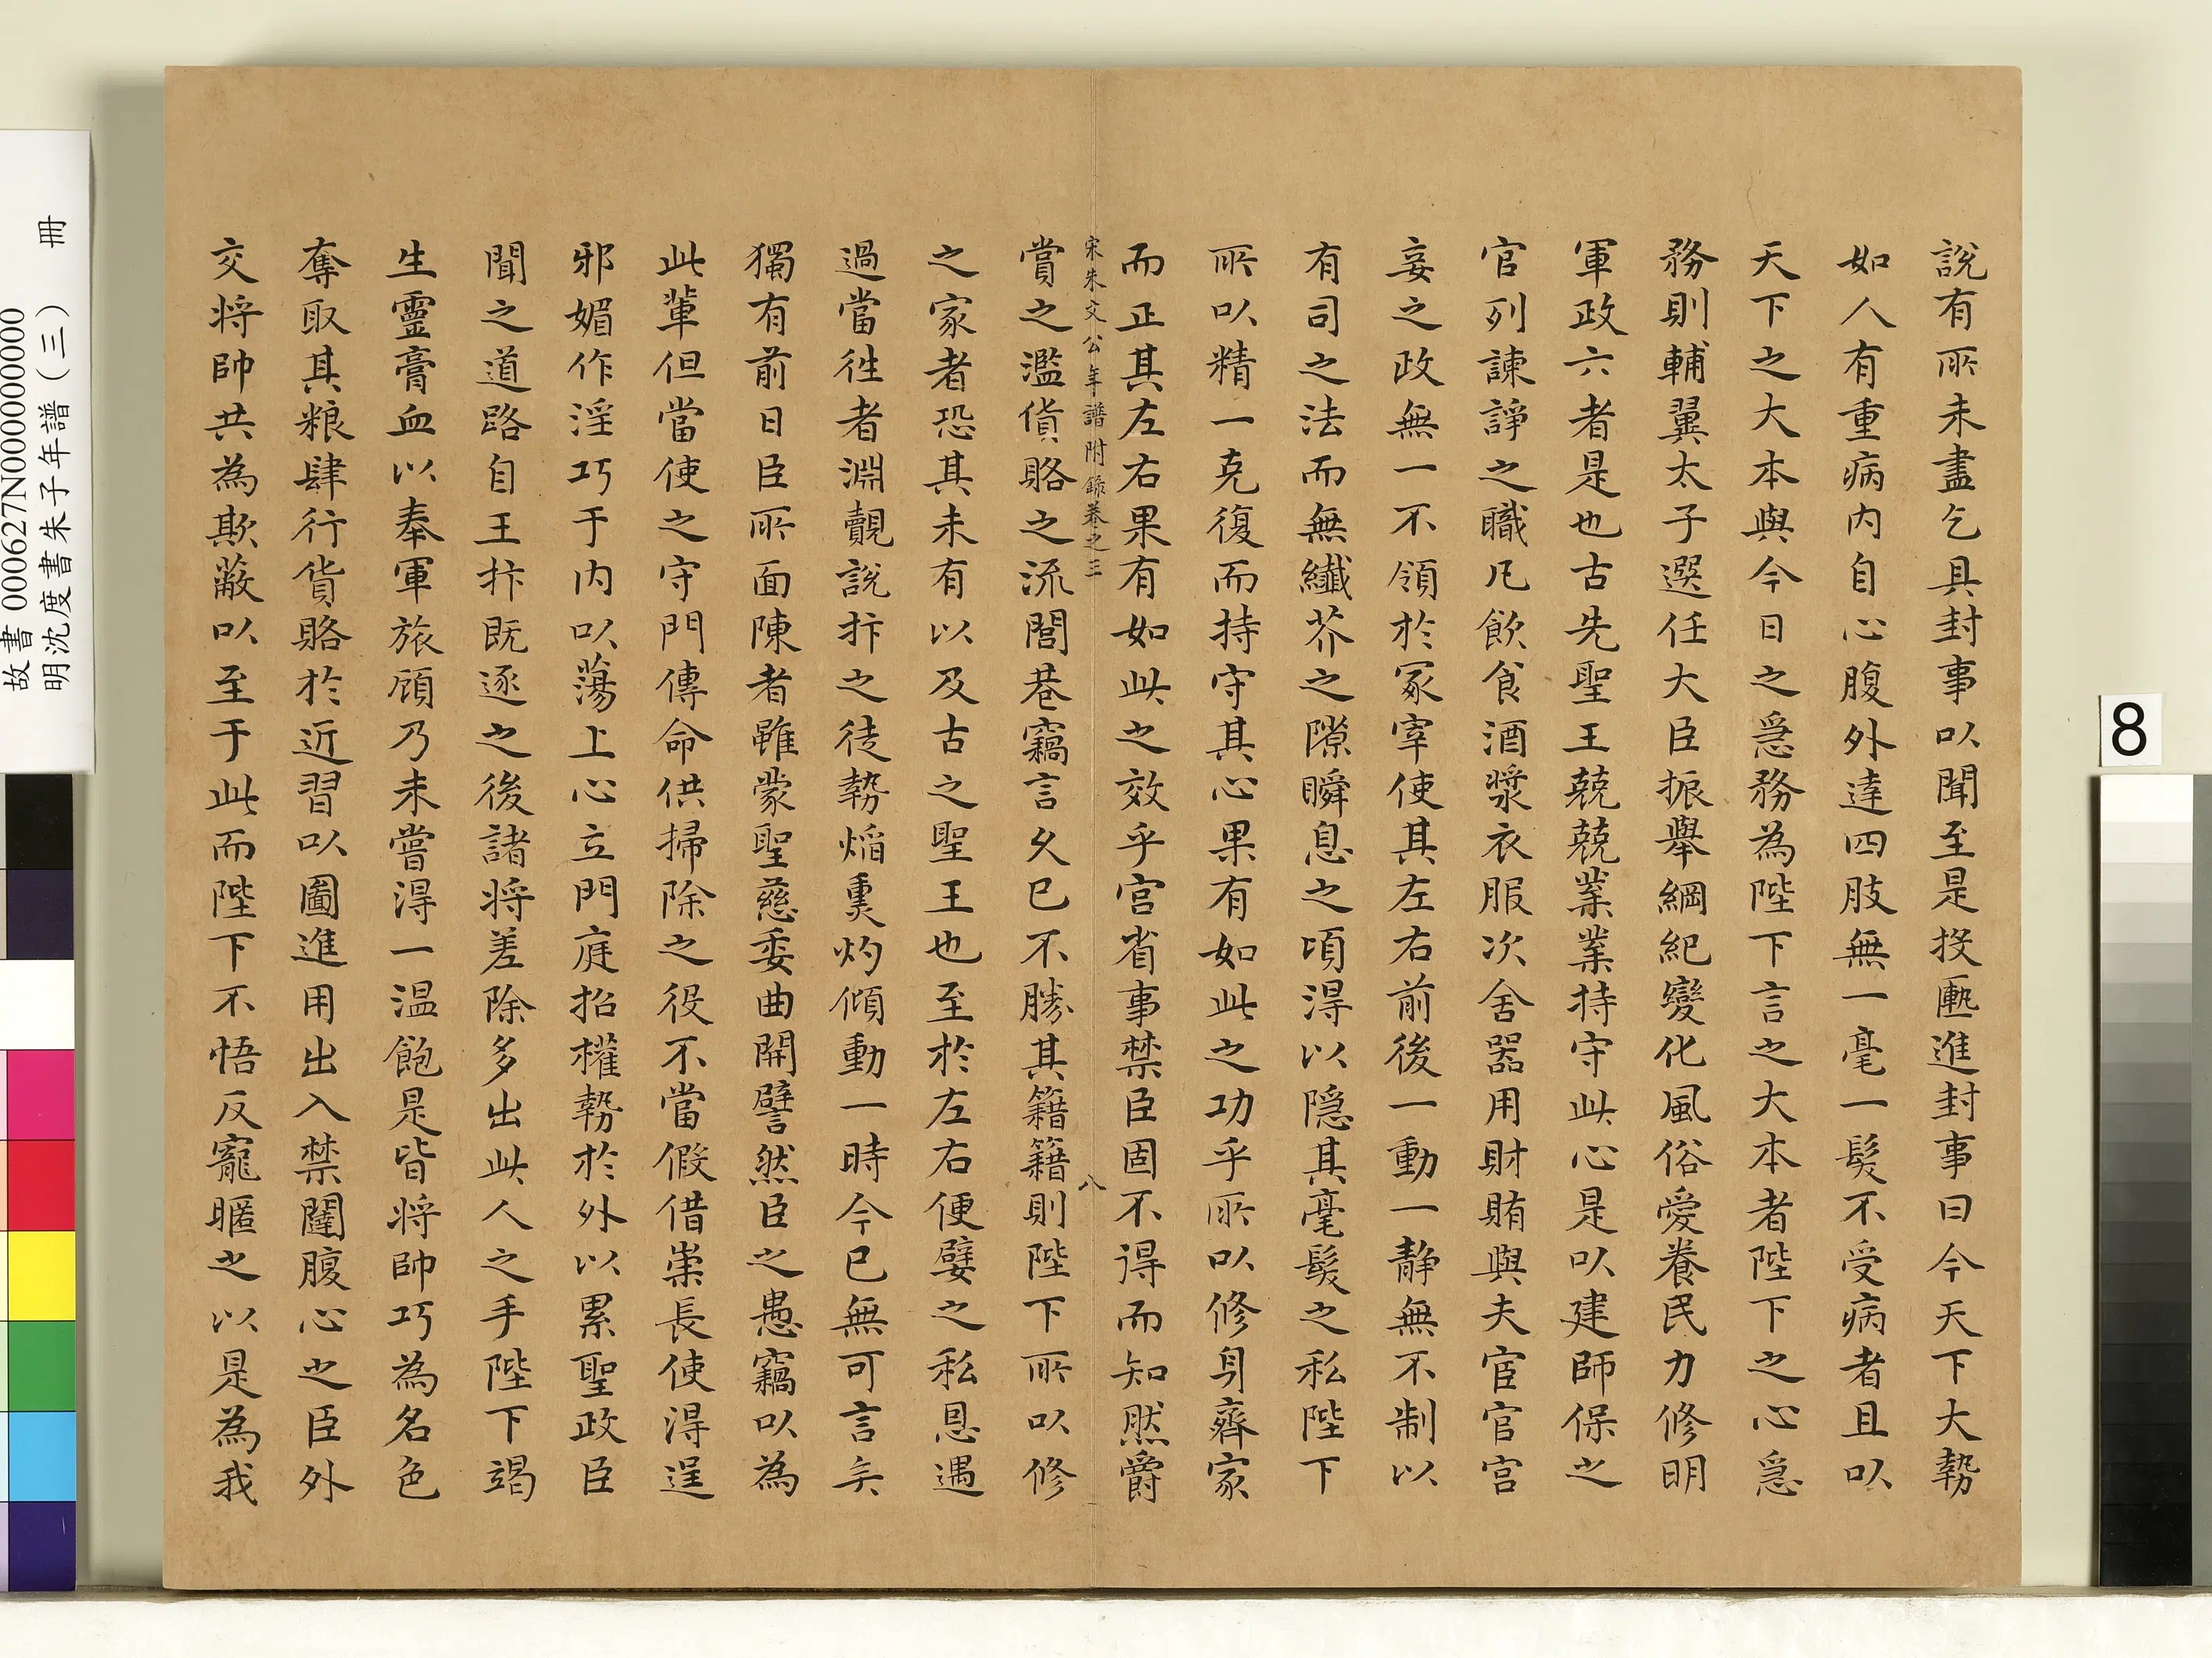 說有所未盡乞具封事以聞至是投匭進封事曰今天下大勢
如人有重病内自心腹外達四肢無一毫一髮不受病者且以
天下之大本與今日之急務為陛下言之大本者陛下之心急
務則輔翼太子選任大臣振舉綱紀變化風俗愛養民力修明
軍政六者是也古先聖王兢兢業業持守此心是以建師保之
官列諫諍之職凡飲食酒漿衣服次舍器用財賄與夫宦官宮
妾之政無一不領於冢宰使其左右前後一動一静無不制以
有司之法而無纖芥之隙瞬息之頃得以隠其毫髮之私陛下
所以精一克復而持守其心果有如此之功乎所以修身齊家
而正其左右果有如此之效乎宮省事禁臣固不得而知然爵
宋朱文公年譜附錄卷之三
八
賞之濫貨賂之流閭巷竊言久已不勝其籍籍則陛下所以修
之家者恐其未有以及古之聖王也至於左右便嬖之私恩遇
過當徃者淵覿說抃之徒勢焰熏灼傾動一時今已無可言矣
獨有前日臣所面陳者雖蒙聖慈委曲開譬然臣之愚竊以為
此輩但當使之守門傳命供掃除之役不當假借崇長使得逞
邪媚作淫巧于内以蕩上心立門庭招權勢於外以累聖政臣
聞之道路自王抃既逐之後諸将差除多出此人之手陛下竭
生靈膏血以奉軍旅顧乃未嘗得一温飽是皆将帥巧為名色
奪取其粮肆行貨賂於近習以圖進用出入禁闥腹心之臣外
交将帥共為欺蔽以至于此而陛下不悟反寵暱之以是為我
故書 000627N000000000
明沈度書朱子年譜（三） 冊
8